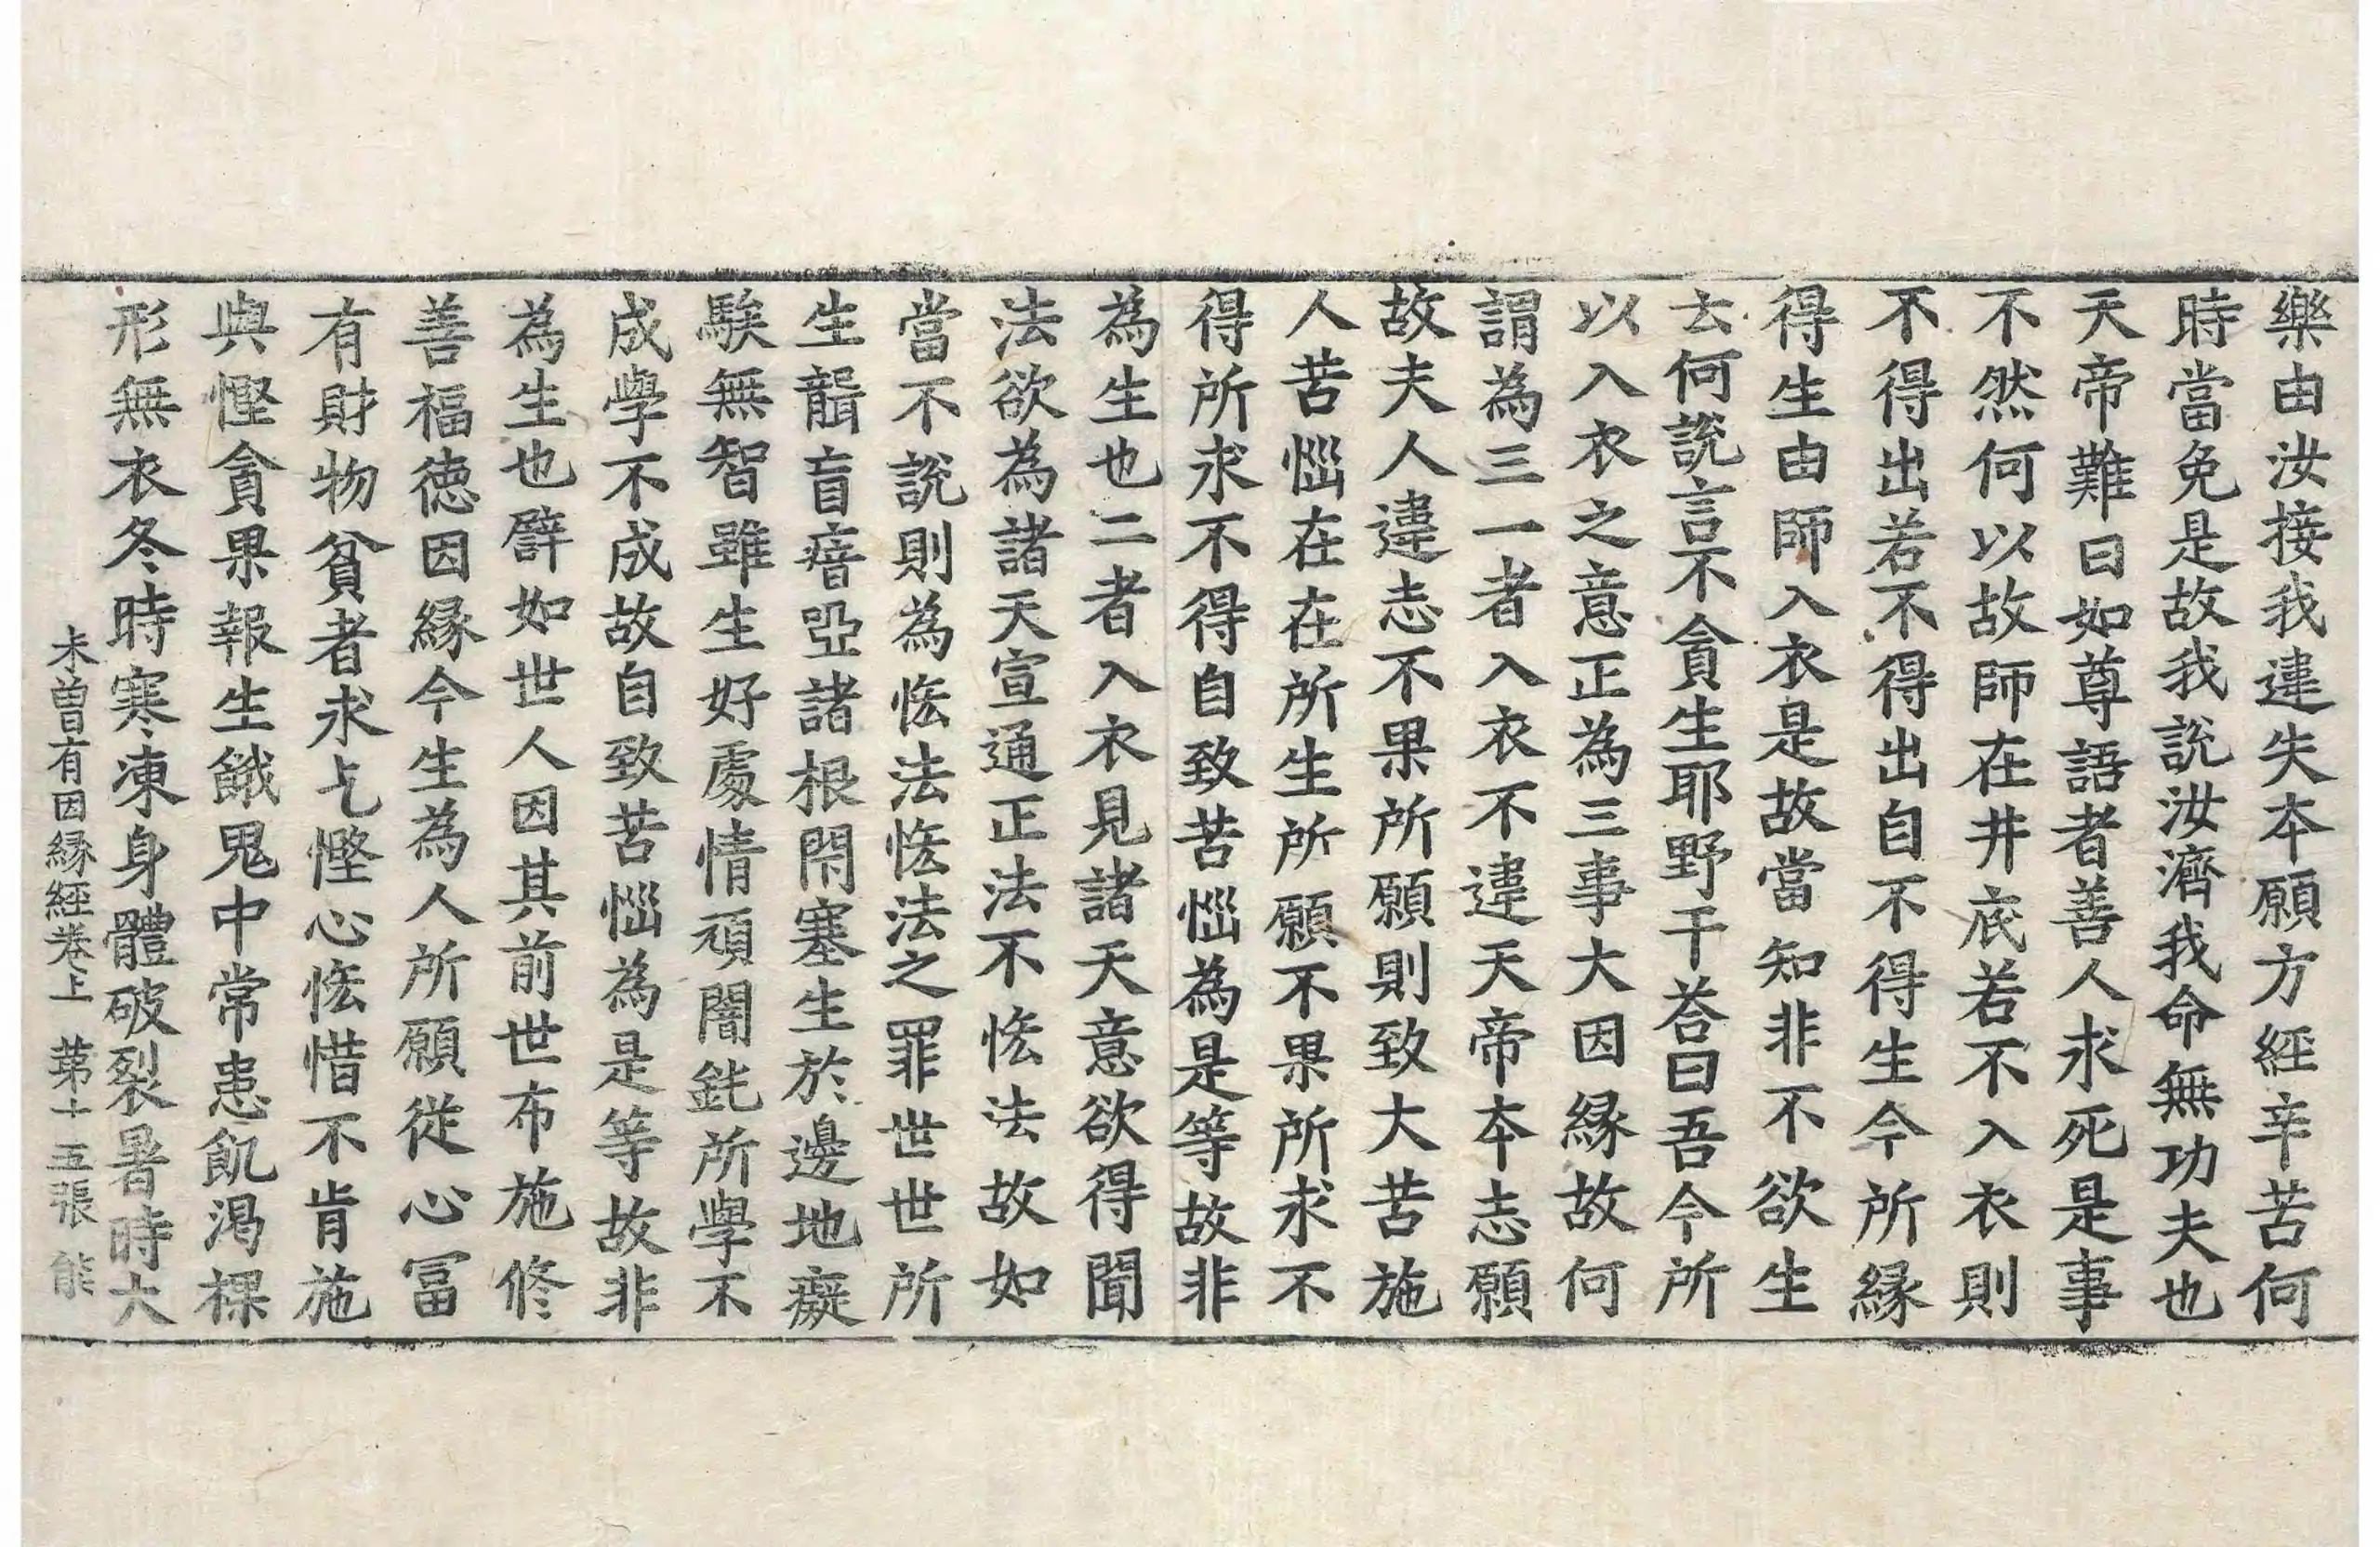 樂由汝接我違失本願方經辛苦何
時當免是故我說汝濟我命無功夫也
天帝難曰如尊語者善人求死是事
不然何以故師在井底若不入衣則
不得出若不得出自不得生今所緣
得生由師入衣是故當知非不欲生
云何說言不貪生耶野干荅曰吾今所
以入衣之意正為三事大因緣故何
謂為三一者入衣不違天帝本志願
故夫人違志不果所願則致大苦施
人苦惱在在所生所願不果所求不
得所求不得自致苦惱為是等故非
為生也二者入衣見諸天意欲得聞
法欲為諸天宣通正法不悋法故如
當不說則為悋法悋法之罪世世所
生聾盲瘖啞諸根閇塞生於邊地癡
騃無智雖生好處情頑闇鈍所學不
成學不成故自致苦惱為是等故非
為生也譬如世人因其前世布施修
善福德因緣今生為人所願從心冨
有財物貧者求乞慳心悋惜不肯施
與慳貪果報生餓鬼中常患飢渴裸
形無衣冬時寒凍身體破裂暑時大
未曾有因緣經卷上 苐十五張 能